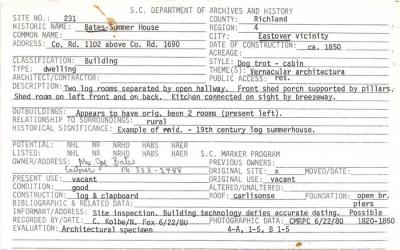 S.C. DEPARTMENT OF ARCHIVES AND HISTORY
SITE NO.: 231 COUNTY: Richland
HISTORIC NAME: Bates Summer House REGION: 4
COMMON NAME: Eastover vicinity
ADDRESS: Co. Rd. 1102 above Co. Rd. 1690 DATE OF CONSTRUCTION: ca. 1850
ACREAGE:
CLASSIFICATION: Building STYLE: Dog trot - cabin
TYPE: dwelling THEME(S): Vernacular architecture
ARCHITECT/CONTRACTOR: PUBLIC ACCESS: res.
DESCRIPTION: Two log rooms separated by open hallway. Front shed porch supported by pillars.
Shed room on left front and on back. Kitchen connected on sight by breezeway.
OUTBUILDINGS: Appears to have orig. been 2 rooms (present left).
RELATIONSHIP TO SURROUNDINGS: rural
HISTORICAL SIGNIFICANCE: Example of mid. - 19th century log summerhouse.
POTENTIAL: NHL NR NHRD HABS HAER
LISTED: NHL NR NHRD HABS HAER S.C. MARKER PROGRAM
OWNER/ADDRESS: Mrs Bates PREVIOUS OWNERS:
Ph. ORIGINAL SITE: x MOVED/DATE:
PRESENT USE: vacant ORIGINAL USE: vacant
CONDITION: good ALTERED/UNALTERED:
CONSTRUCTION: log & clapboard ROOF: carlisonse FOUNDATION: open br.
BIBLIOGRAPHIC & RELATED DATA: piers
INFORMANT/ADDRESS: Site inspection. Building technology defies accurate dating. Possible
RECORDED BY/DATE: C. Kolbe/N. Fox 6/22/80 PHOTOGRAPHIC DATA: CMRPC 6/22/80 1820-1850
EVALUATION: Architectural specimen 4-A, 1-5, B 1-5